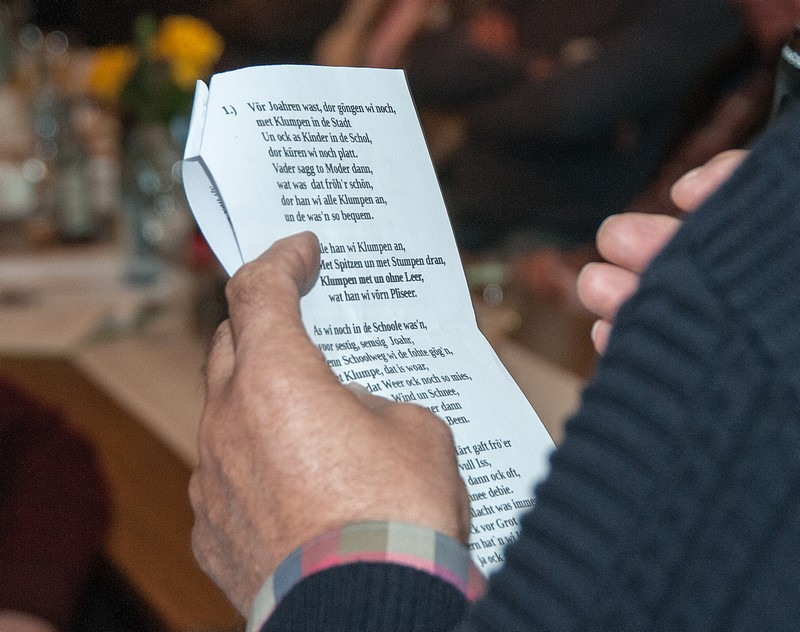 1.) Vör Joahren wast, dor göngen wi noch,
met Klumpen in de Stadt
Un ock as Kinder in de Schol,
dor küren wi noch platt.
Vader sagg to Moder dann,
wat was dat fröh'r schön,
dor han wi alle Klumpen an,
un de was'n so bequem.
han wi Klumpen an,
Met Spitzen un met Stumpen dran,
Klumpen met un ohne Leer,
wat han wi vörn Pliseer.
As wi noch in de Schoole was'n,
voor sestig, semsig Joahr,
Schoolweg wi de fohte gög'n,
Klumpe, dat is woar,
dat Weer ock noch so mies,
Wind un Schnee,
dann
Been.
gaft frö'er
vull Iss,
dann ock oft,
debie.
was immer
vor
hat'n wi
ja ock